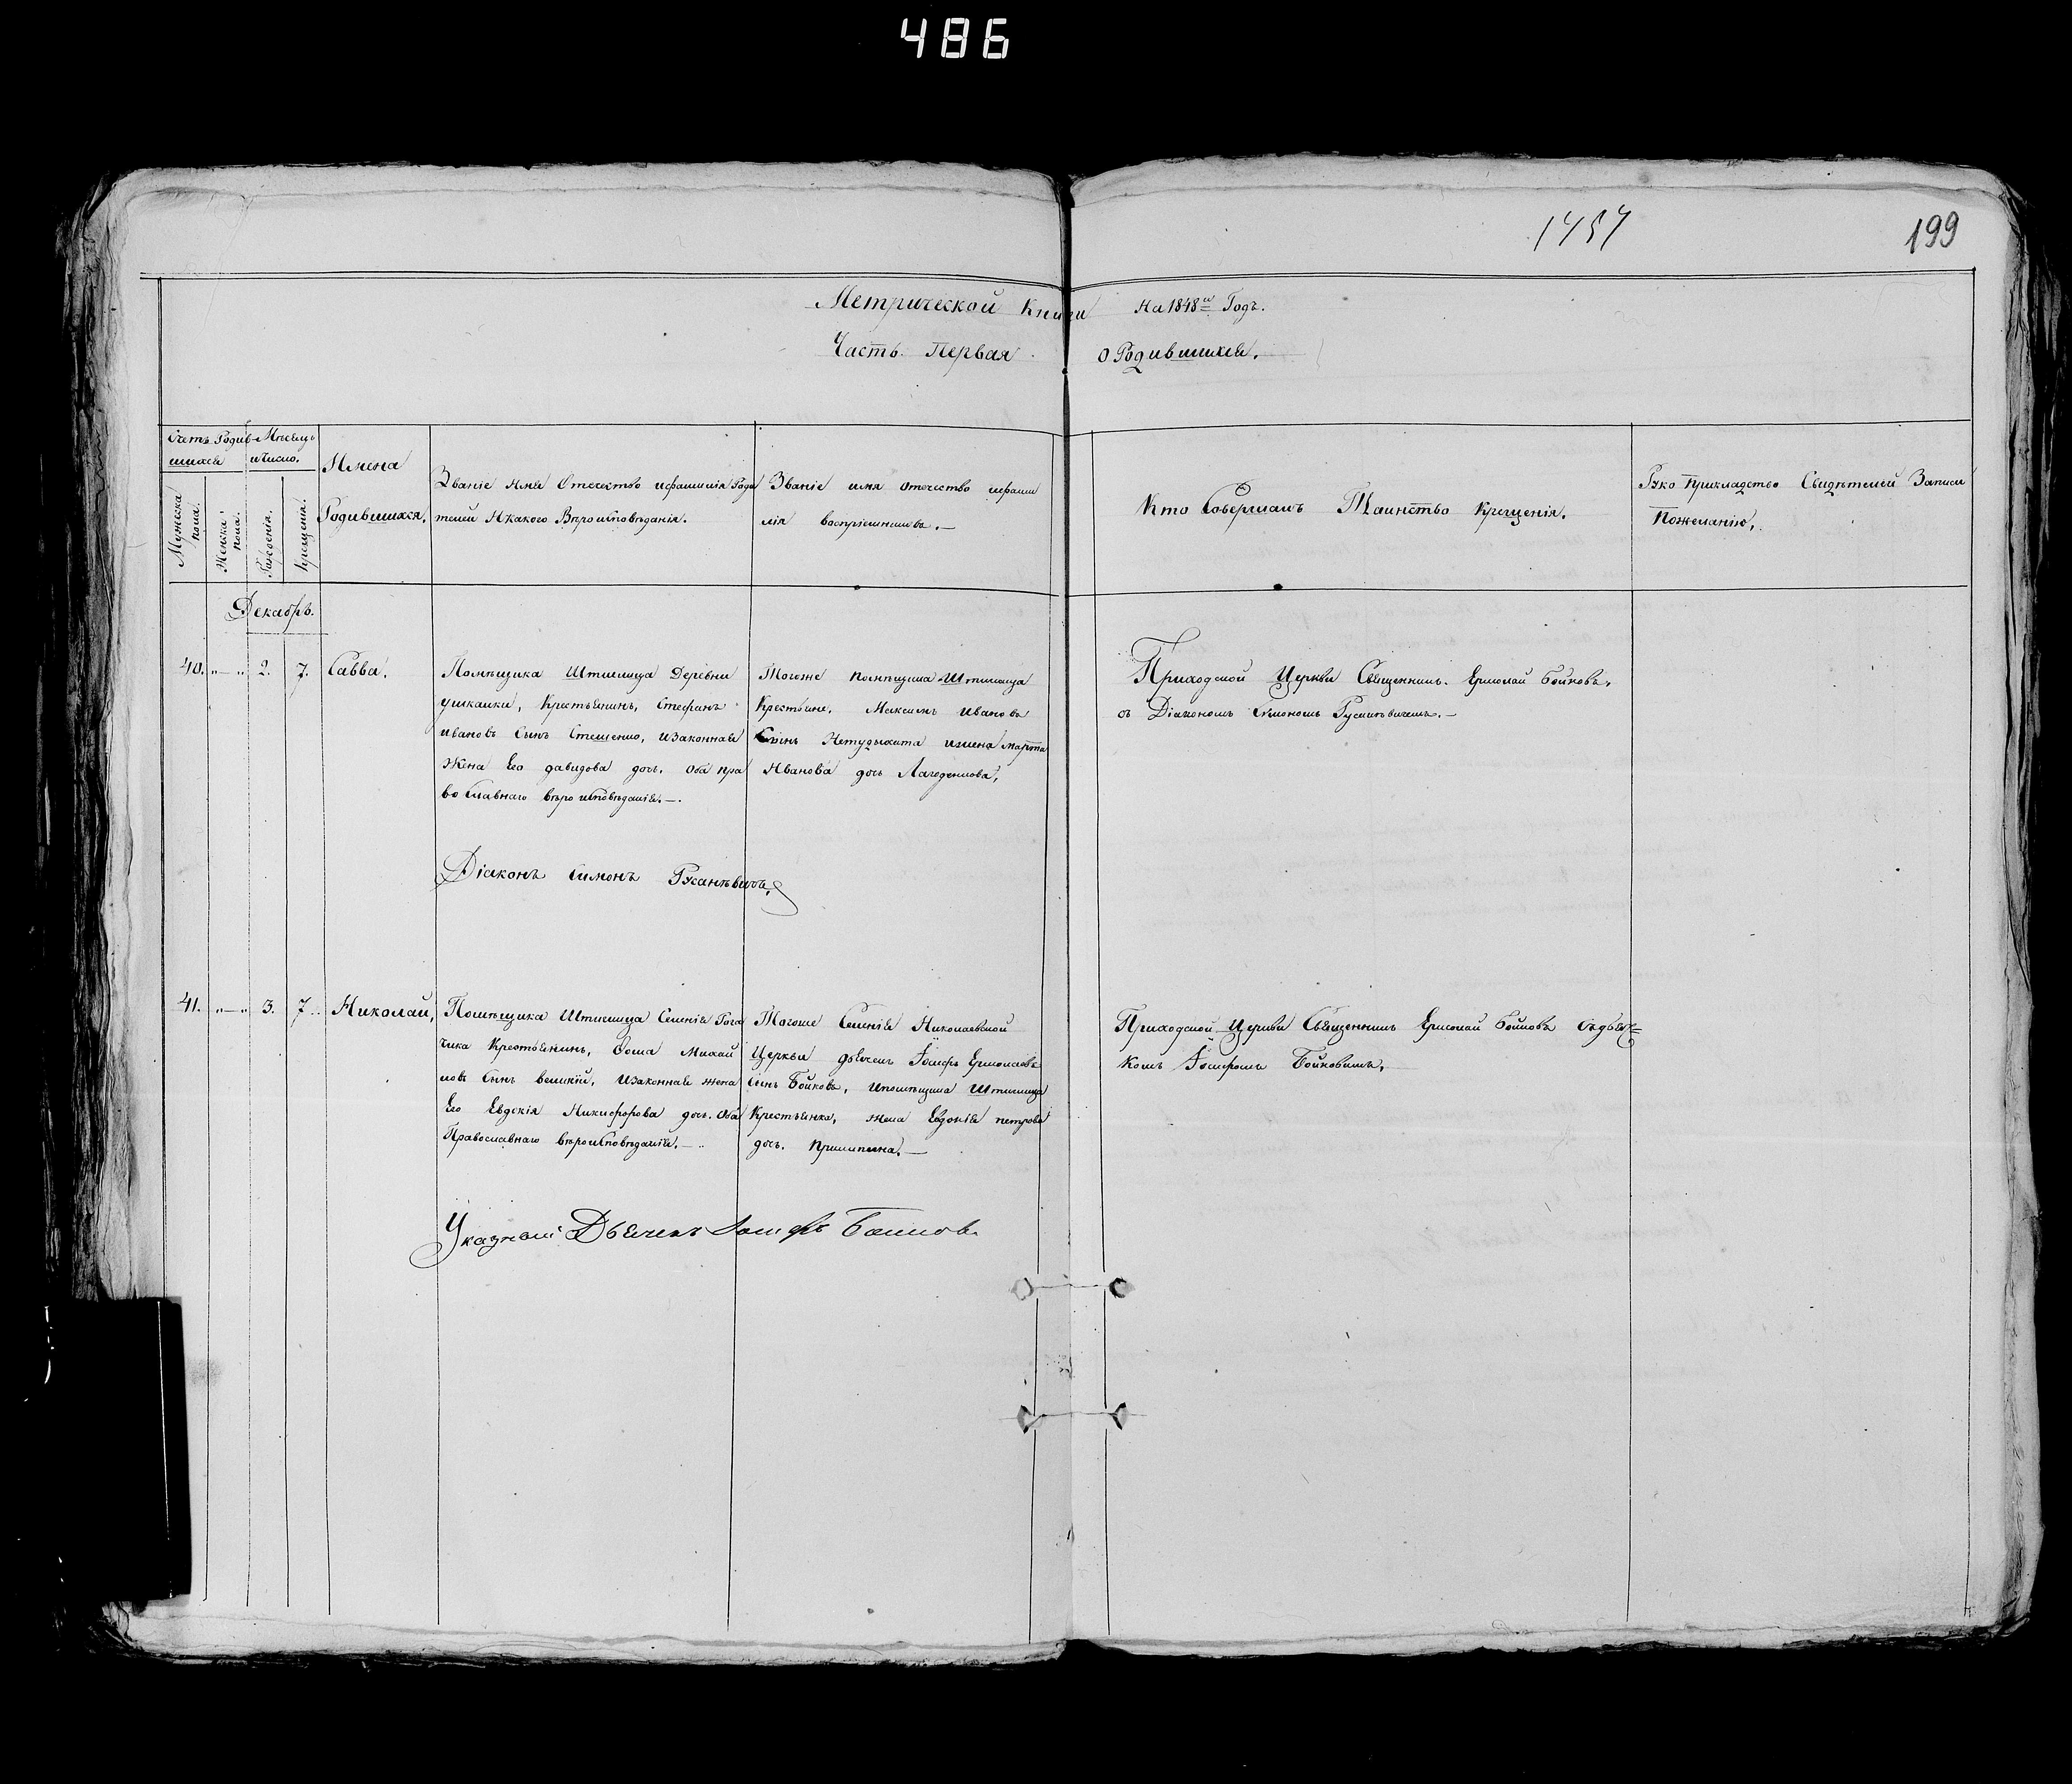 486
1457
199
Метрической Книги На 1848й Годъ.
Часть Первая о Родившихся.
Счетъ Родив
шихся
Мѣсяцъ
и Число.
Мужеска
пола.
Женска
пола.
Рожденія.
Крещенія.
Имена
Родившихся.
Званіе Имя Отечество и фамилія Роди
телей И какого Вѣроисповѣданія.
Званіе имя отечество и фами
лія воспріемниковъ.—
Кто Совершалъ Таинство Крещенія.
Руко Прикладство Свидѣтелей Записи
Пожеланію.
Декабрь.
40. „—„ 2. 7. Савва.
Помѣщика Штиглица Деревни
ушкалки, Крестьянинъ, Стефанъ
Ивановъ Сынъ Стеценко, изаконная
Жена Его давидова дочь. Оба пра
во Славнаго вѣро исповѣданія.—.
Тогоже помѣщика Штиглица
Крестьяне. Максимъ Ивановъ
Сынъ Нетудыхата ижена Марта
Иванова дочь Лагоденкова.
Приходской Церкви Священникъ. Ермолай Бойковъ.
съ Діакономъ Симономъ Русанѣвичемъ.—
Діаконъ Симонъ Русанѣвичъ.
41. „—„ 3. 7. Николай,
Помѣщика Штиглица Селенія Рога
чика Крестьянинъ, Фома Михай
ловъ Сынъ великій, изаконная жена
Его Евдокія Никифорова дочь. Оба
Православнаго вѣроисповѣданія.—.
Тогоже Селенія Николаевской
Церкви дьячекъ Іосифъ Ермолаевъ
Сынъ Бойковъ, ипомѣщика Штиглица
Крестьянка, жена Евдокія петрова
дочь.
Приходской Церкви Священникъ Ермолай Бойковъ Съдьяч=
комъ Іосифомъ Бойковымъ.
Указной Дьячекъ Іосифъ Бойковъ